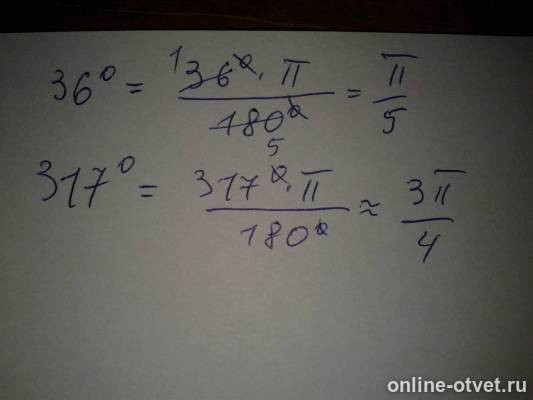 36° = 36° · π / 180° = π / 5
1
5
317° = 317° · π / 180° ≈ 3π / 4
online-otvet.ru